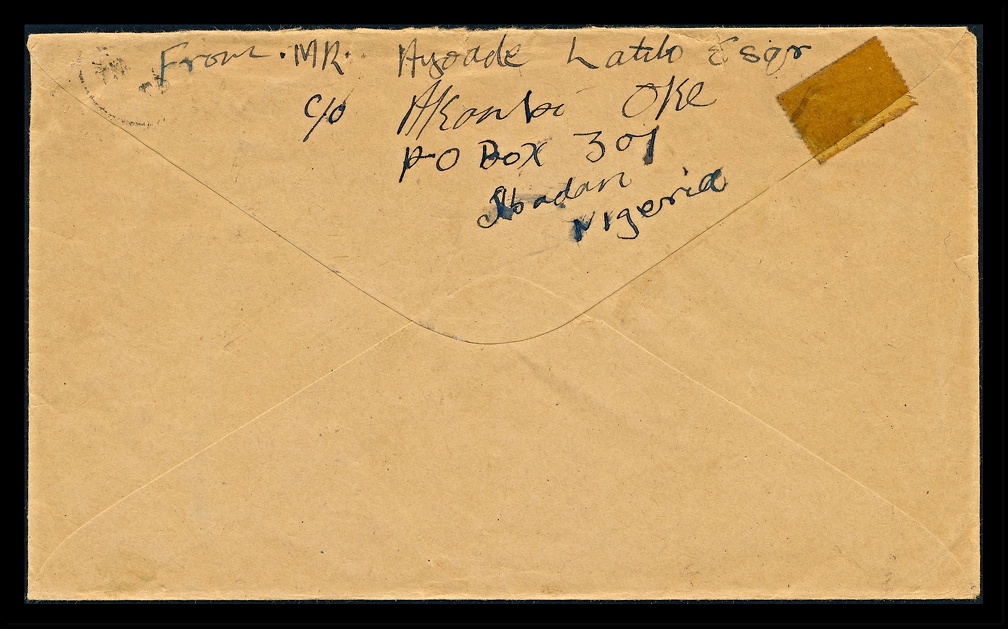 From. MR. Ayoade Latilo Esqr
c/o Akanbi Oke
P O Box 301
Ibadan
Nigeria